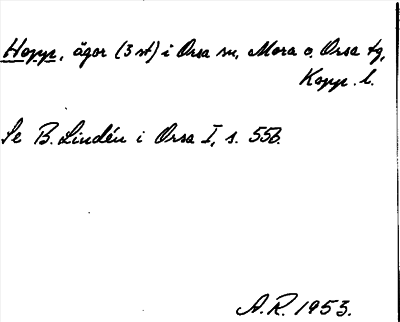 Hopp, ägor (3 st) i Orsa sn, Mora o. Orsa tg,
Kopp. l.
Se B. Lindén i Orsa I, s. 556.
A.R. 1953.